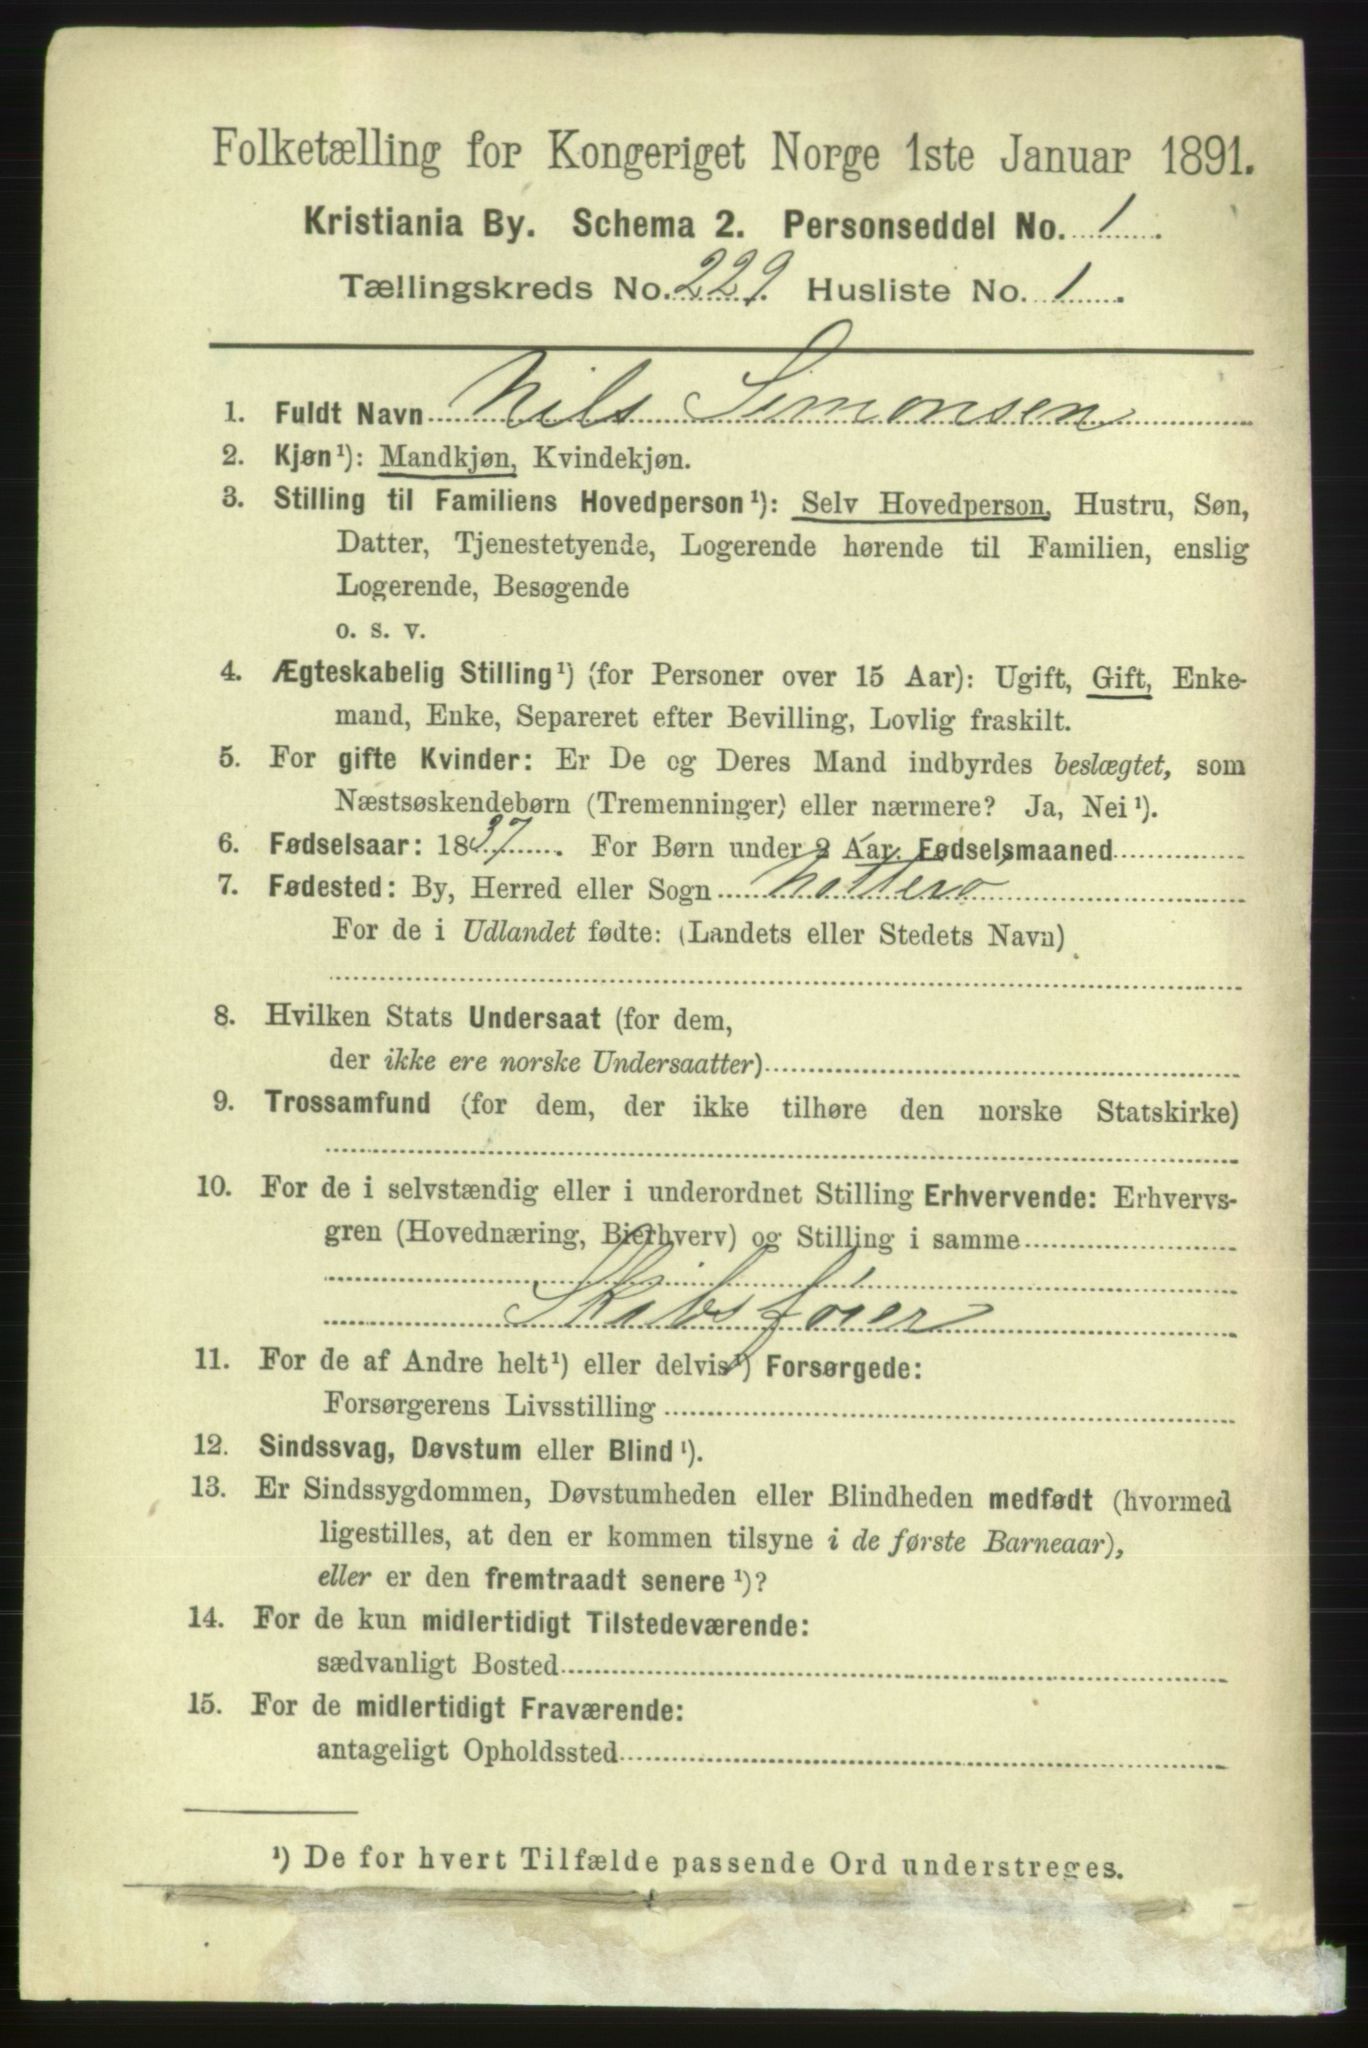 Folketælling for Kongeriget Norge 1ste Januar 1891.
Kristiania By. Schema 2. Personseddel No. 1
Tællingskreds No. 229. Husliste No. 1
1. Fuldt Navn Nils Simonsen
2. Kjøn¹): Mandkjøn, Kvindekjøn.
3. Stilling til Familiens Hovedperson¹): Selv Hovedperson, Hustru, Søn,
Datter, Tjenestetyende, Logerende hørende til Familien, enslig
Logerende, Besøgende
o. s. v.
4. Ægteskabelig Stilling¹) (for Personer over 15 Aar): Ugift, Gift, Enke-
mand, Enke, Separeret efter Bevilling, Lovlig fraskilt.
5. For gifte Kvinder: Er De og Deres Mand indbyrdes beslægtet, som
Næstsøskendebørn (Tremenninger) eller nærmere? Ja, Nei¹).
6. Fødselsaar: 1837. For Børn under 2 Aar. Fødselsmaaned
7. Fødested: By, Herred eller Sogn Nøtterø
For de i Udlandet fødte: (Landets eller Stedets Navn)
8. Hvilken Stats Undersaat (for dem,
der ikke ere norske Undersaatter)
9. Trossamfund (for dem, der ikke tilhøre den norske Statskirke)
10. For de i selvstændig eller i underordnet Stilling Erhvervende: Erhvervs-
gren (Hovednæring, Bierhverv) og Stilling i samme
Skibsfører
11. For de af Andre helt¹) eller delvis¹) Forsørgede:
Forsørgerens Livsstilling
12. Sindssvag, Døvstum eller Blind¹).
13. Er Sindssygdommen, Døvstumheden eller Blindheden medfødt (hvormed
ligestilles, at den er kommen tilsyne i de første Barneaar),
eller er den fremtraadt senere¹)?
14. For de kun midlertidigt Tilstedeværende:
sædvanligt Bosted
15. For de midlertidigt Fraværende:
antageligt Opholdssted
¹) De for hvert Tilfælde passende Ord understreges.